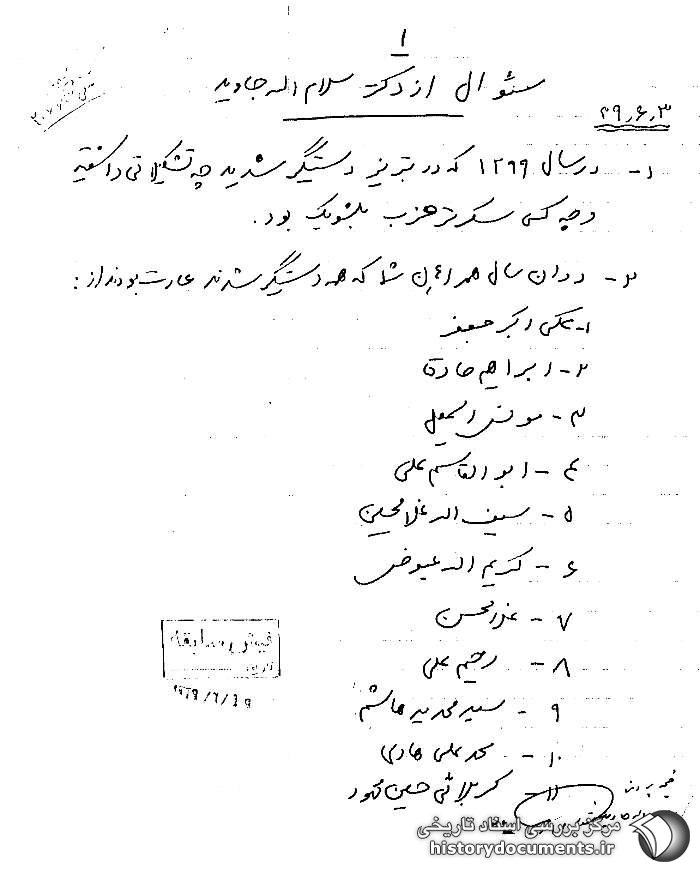 ۱
سئوال از دکتر سلام اله جاوید
۳ر۶ر۴۹
۱- در سال ۱۲۹۹ که در تبریز دستگیر شدید چه تشکیلاتی داشتید
و چه کسی سکرتر حزب بلشویک بود.
۲- در آن سال همراهان شما که همه دستگیر شدند عبارت بودند از:
۱- اکبر جعفر
۲- ابراهیم صادق
۳- مونس اسمعیل
۴- ابوالقاسم علی
۵- سیف اله غلامحسین
۶- کریم اله عیوض
۷- محسن
۸- رحیم علی
۹- سید محمد میر هاشم
۱۰- محمد علی هادی
۱۱- کربلائی حسین محمود
مرکز بررسی اسناد تاریخی
historydocuments.ir